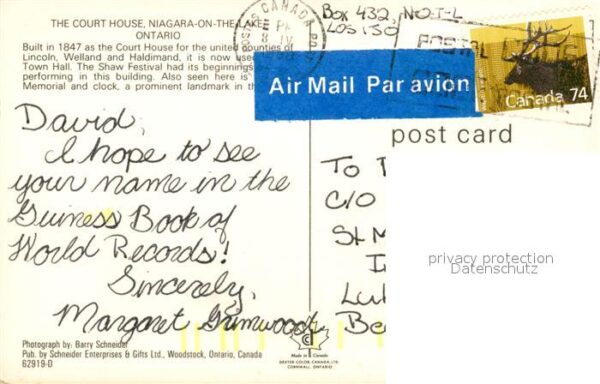 THE COURT HOUSE, NIAGARA-ON-THE-LAKE
ONTARIO
Built in 1847 as the Court House for the united counties of
Lincoln, Welland and Haldimand, it is now used
Town Hall. The Shaw Festival had its beginnings
performing in this building. Also seen here is
Memorial and clock, a prominent landmark in
CANADA
PM
IV
Box 432, N-O-T-L
LOS 1J0
POSTAL CODE
Air Mail Par avion
Canada 74
post card
David,
I hope to see
your name in the
Guiness Book of
World Records!
Sincerely,
Margaret Grimwood
To
C/O
St M
Lul
Be
privacy protection
Datenschutz
Photograph by: Barry Schneider
Pub. by Schneider Enterprises & Gifts Ltd., Woodstock, Ontario, Canada
62919-D
Made in Canada
DEXTER COLOR CANADA, LTD.
CORNWALL, ONTARIO